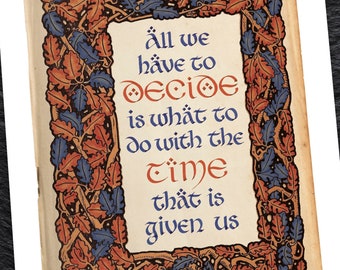 All we
have to
DECIDE
is what to
do with the
TIME
that is
given us